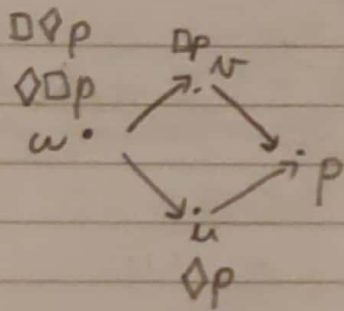 □◊p
◊□p
w
□p
v
p
u
◊p